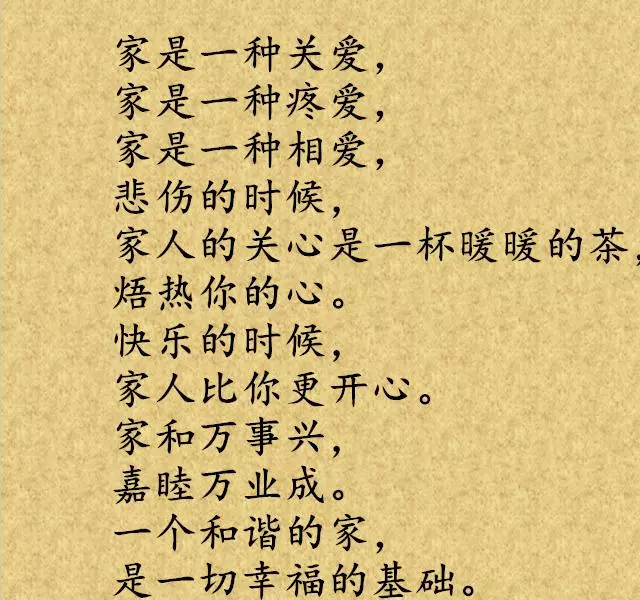 家是一种关爱，
家是一种疼爱，
家是一种相爱，
悲伤的时候，
家人的关心是一杯暖暖的茶，
焐热你的心。
快乐的时候，
家人比你更开心。
家和万事兴，
嘉睦万业成。
一个和谐的家，
是一切幸福的基础。